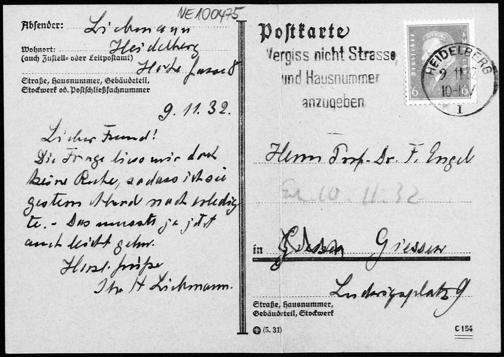 NE100475
Absender: Liebmann
Wohnort: Heidelberg
(auch Zustell- oder Leitpostamt)
Straße, Hausnummer, Gebäudeteil,
Stockwerk od. Postschließfachnummer
9.11.32.
Lieber Freund!
Die Frage liess mir doch
keine Ruhe, sodass ich sie
gestern Abend noch erledig
te. - Das musste ja jetzt
auch leicht gehn.
Herzl. Grüße
Ihr H Liebmann.
Postkarte
Vergiss nicht Strasse
und Hausnummer
anzugeben
6
HEIDELBERG
9.11.32
10-
1
Herrn Prof. Dr. F. Engel
10.11.32
in Giessen
Ludwigsplatz 9
Straße, Hausnummer,
Gebäudeteil, Stockwerk
(5. 31)
C 154